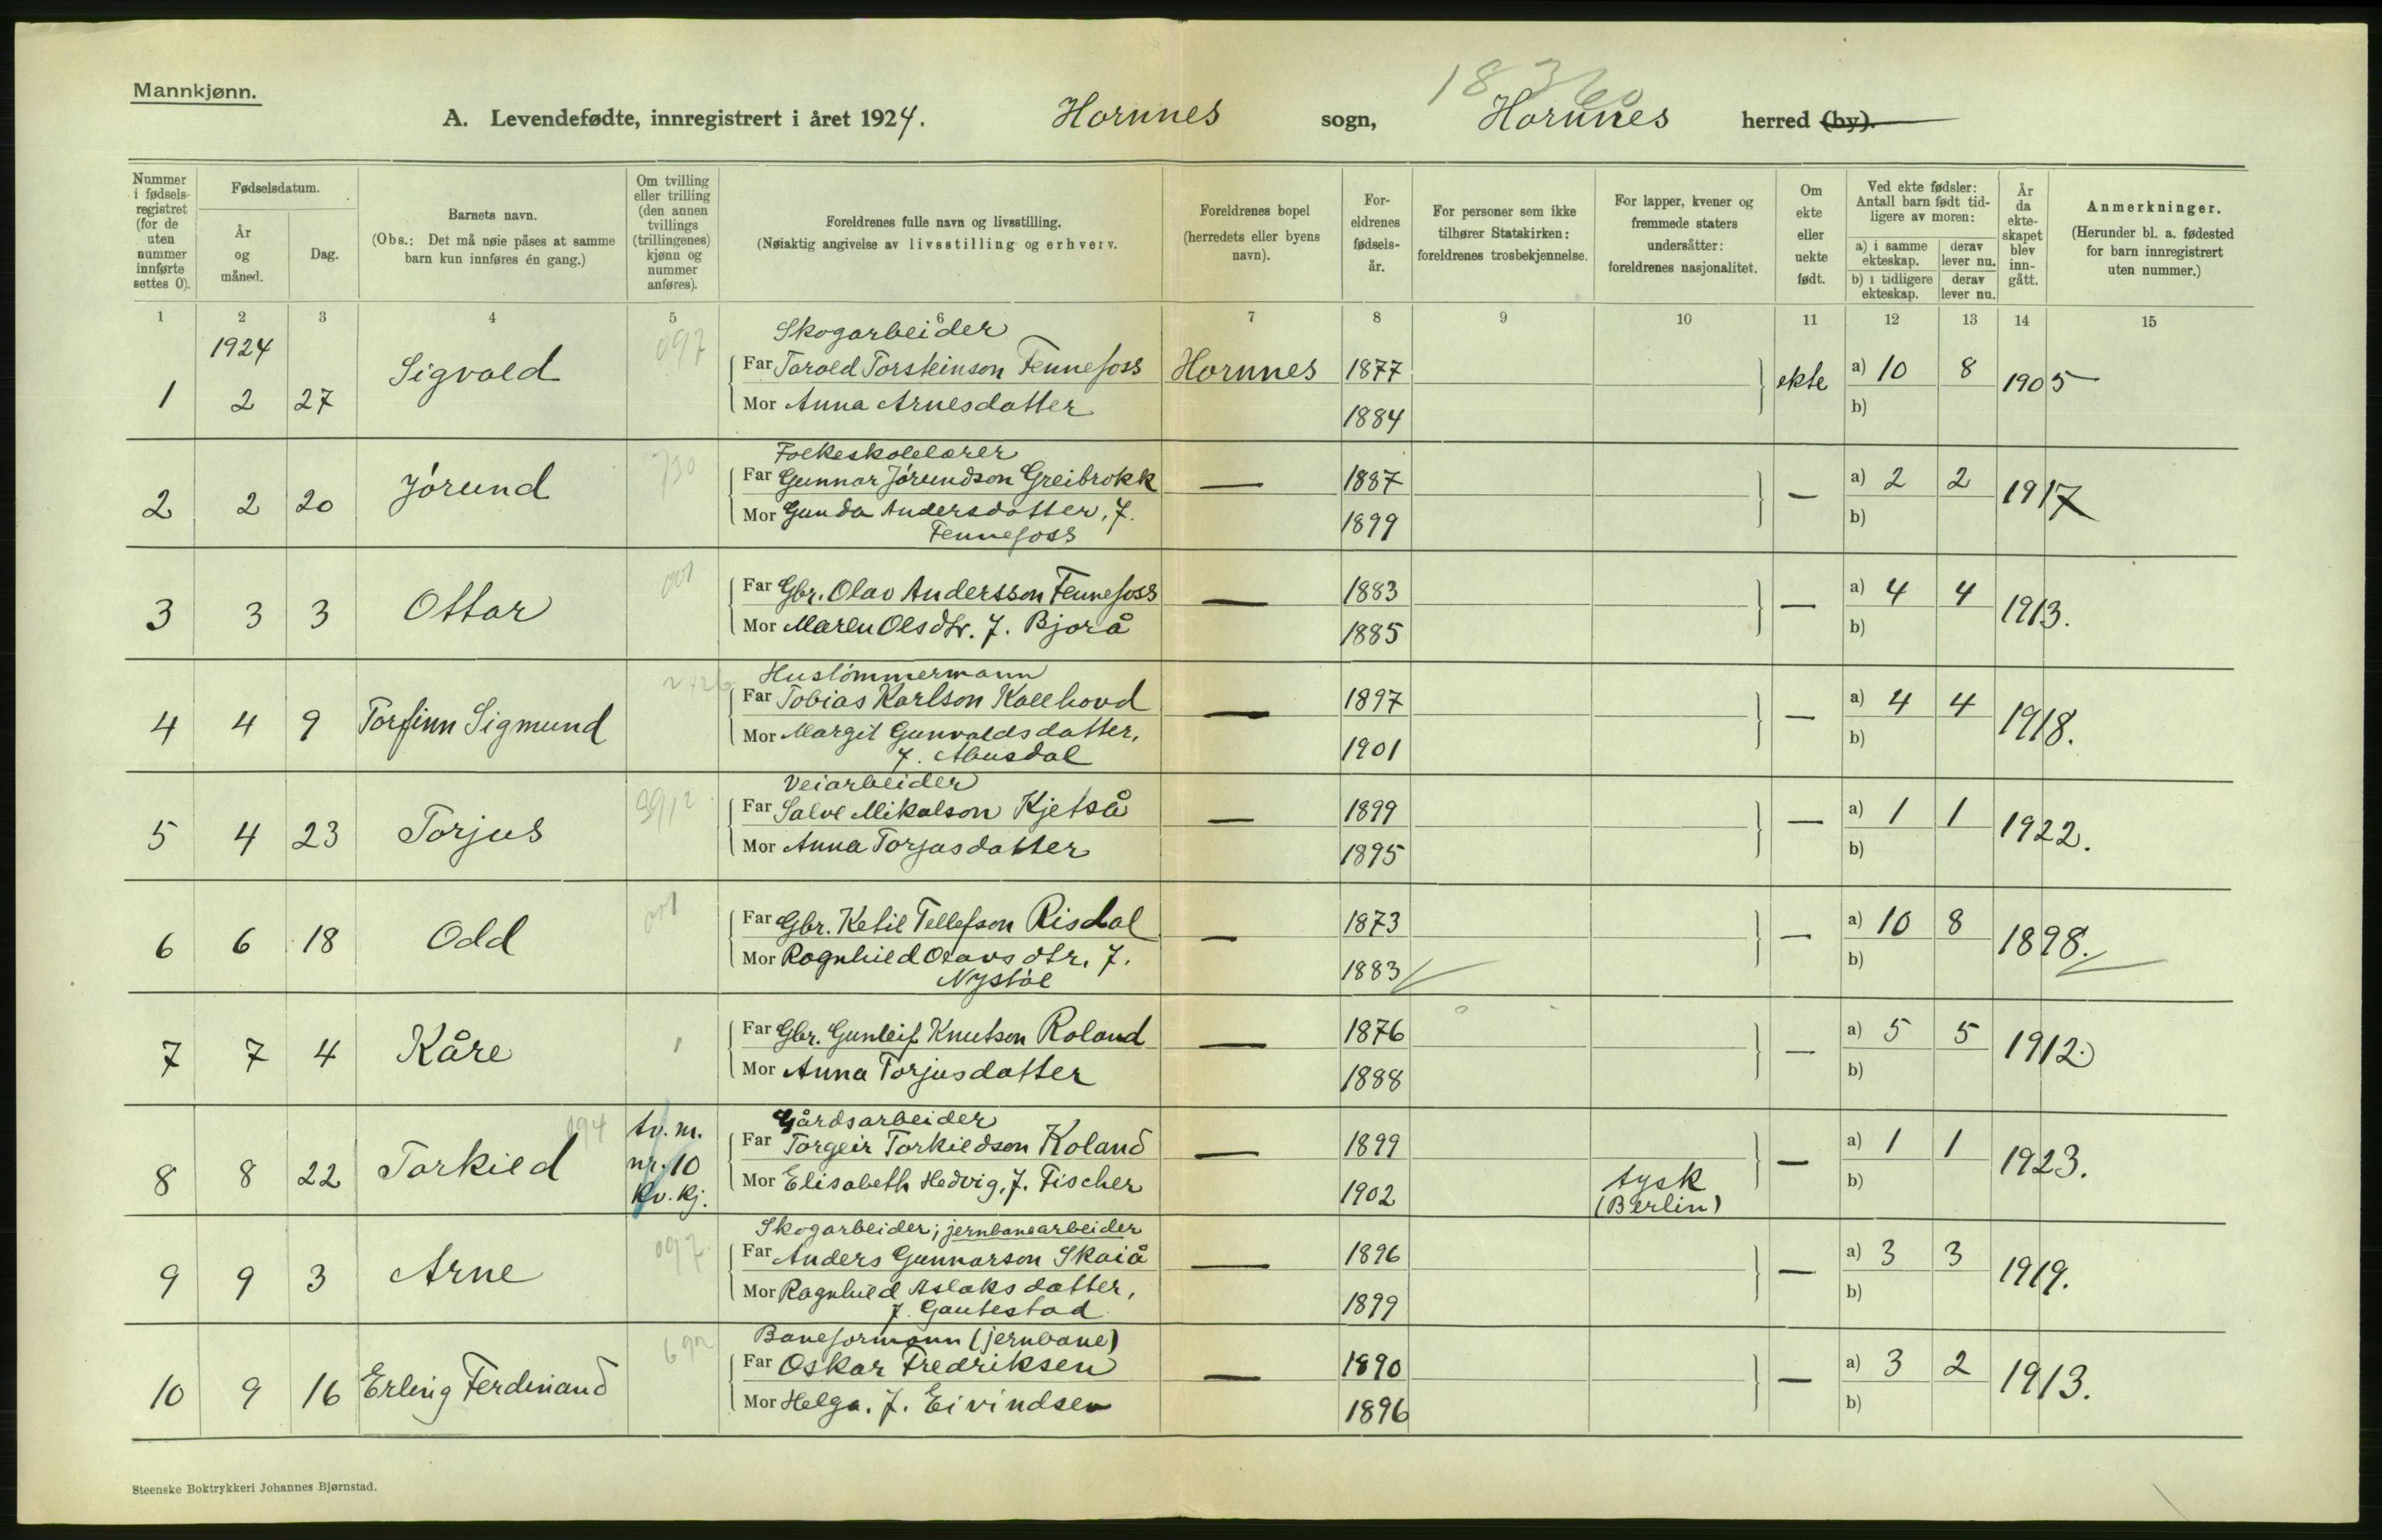 Mannkjønn.
18360
A. Levendefødte, innregistrert i året 1924. Hornnes sogn, Hornnes herred (by).
Nummer i fødselsregistret (for de uten nummer innførte settes 0).
Fødselsdatum.
År og måned.
Dag.
Barnets navn.
(Obs.: Det må nøie påses at samme barn kun innføres én gang.)
Om tvilling eller trilling (den annen tvillings (trillingenes) kjønn og nummer anføres).
Foreldrenes fulle navn og livsstilling.
(Nøiaktig angivelse av livsstilling og erhverv.
Foreldrenes bopel (herredets eller byens navn).
Foreldrenes fødselsår.
For personer som ikke tilhører Statskirken: foreldrenes trosbekjennelse.
For lapper, kvener og fremmede staters undersåtter: foreldrenes nasjonalitet.
Om ekte eller uekte født.
Ved ekte fødsler: Antall barn født tidligere av moren:
a) i samme ekteskap.
derav lever nu.
b) i tidligere ekteskap.
derav lever nu.
År da ekteskapet blev inngått.
Anmerkninger.
(Herunder bl. a. fødested for barn innregistrert uten nummer.)
1 2 3 4 5 6 7 8 9 10 11 12 13 14 15
1924 097 Skogarbeider
1 2 27 Sigvald Far Tarald Torsteinson Fennefoss Hornnes 1877 ekte a) 10 8 1905
Mor Anna Arnesdatter 1884 b)
730 Folkeskolelærer
2 2 20 Jørund Far Gunnar Jørundson Greibrokk — 1887 — a) 2 2 1917
Mor Gunda Andersdatter, f. 1899 b)
Fennefoss
001
3 3 3 Ottar Far Gbr. Olav Andersson Fennefoss — 1883 — a) 4 4 1913.
Mor Maren Olsdtr. f. Bjorå 1885 b)
Hustømmermann
4 4 9 Torfinn Sigmund Far Tobias Karlson Kallhovd — 1897 — a) 4 4 1918.
Mor Margit Gunvaldsdatter, 1901 b)
f. Abusdal
Veiarbeider
5 4 23 Torjus Far Salve Mikalson Kjetså — 1899 — a) 1 1 1922.
Mor Anna Torjusdatter 1895 b)
001
6 6 18 Odd Far Gbr. Ketil Tellefson Risdal — 1873 — a) 10 8 1898.
Mor Ragnhild Olavsdtr. f. 1883 b)
Nystøl
7 7 4 Kåre Far Gbr. Gunleif Knutson Roland — 1876 — a) 5 5 1912.
Mor Anna Torjusdatter 1888 b)
094 tv. m. Gårdsarbeider
8 8 22 Torkild nr. 10 Far Torgeir Torkildson Roland — 1899 — a) 1 1 1923.
kv. kj. Mor Elisabeth Hedvig, f. Fischer 1902 tysk b)
(Berlin)
097 Skogarbeider; jernbanearbeider
9 9 3 Arne Far Anders Gunnarson Skaiå — 1896 — a) 3 3 1919.
Mor Ragnhild Aslaksdatter, 1899 b)
f. Gautestad
Baneformann (jernbane)
10 9 16 Erling Ferdinand Far Oskar Fredriksen — 1890 — a) 3 2 1913.
Mor Helga. f. Eivindsen 1896 b)
Steenske Boktrykkeri Johannes Bjørnstad.